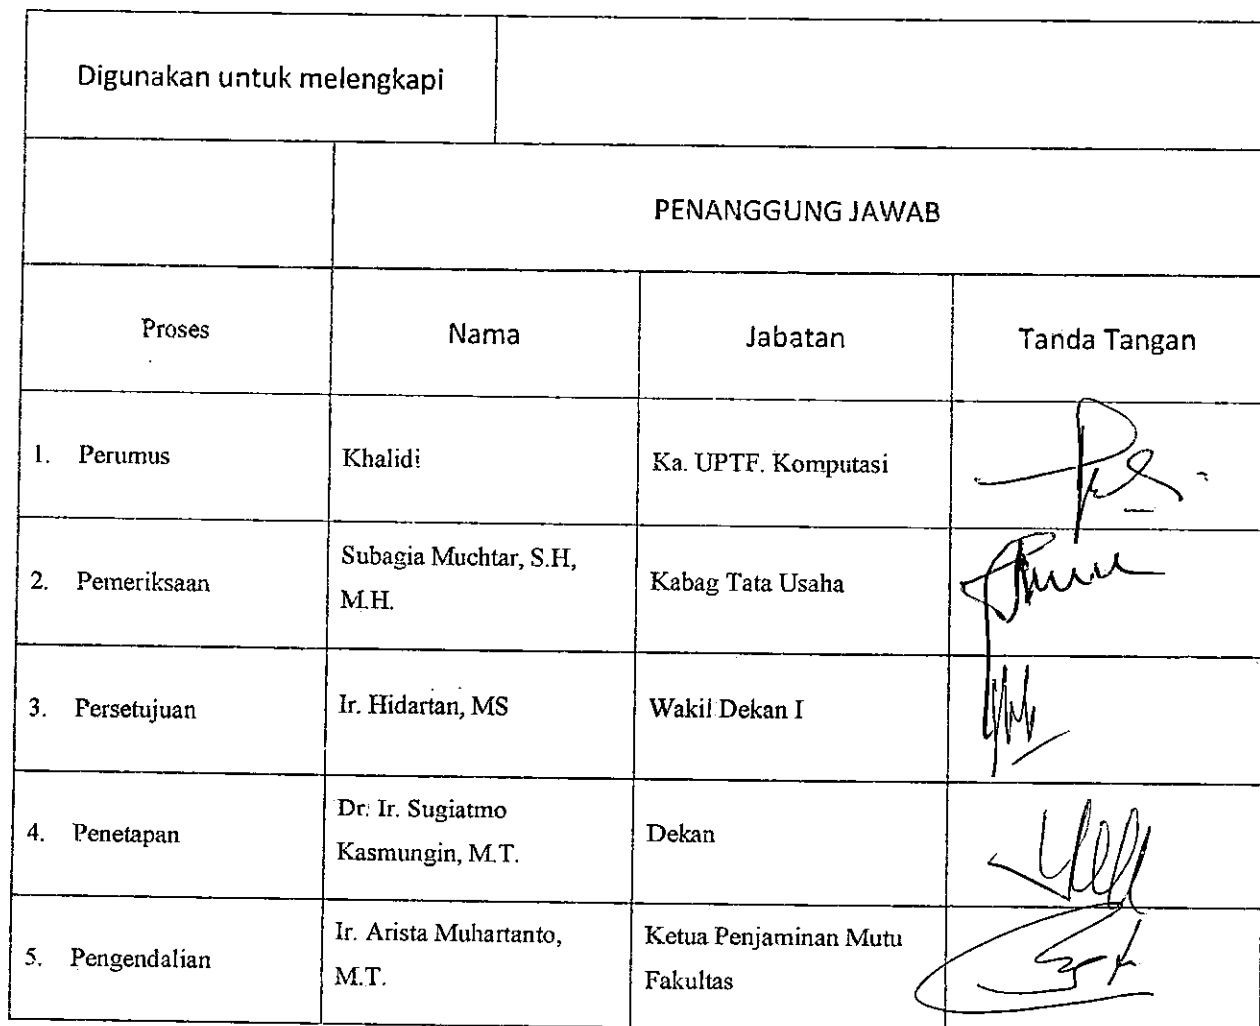 Digunakan untuk melengkapi
PENANGGUNG JAWAB
Proses
Nama
Jabatan
Tanda Tangan
1. Perumus
Khalidi
Ka. UPTF. Komputasi
2. Pemeriksaan
Subagia Muchtar, S.H,
M.H.
Kabag Tata Usaha
3. Persetujuan
Ir. Hidartan, MS
Wakil Dekan I
4. Penetapan
Dr. Ir. Sugiatmo
Kasmungin, M.T.
Dekan
5. Pengendalian
Ir. Arista Muhartanto,
M.T.
Ketua Penjaminan Mutu
Fakultas